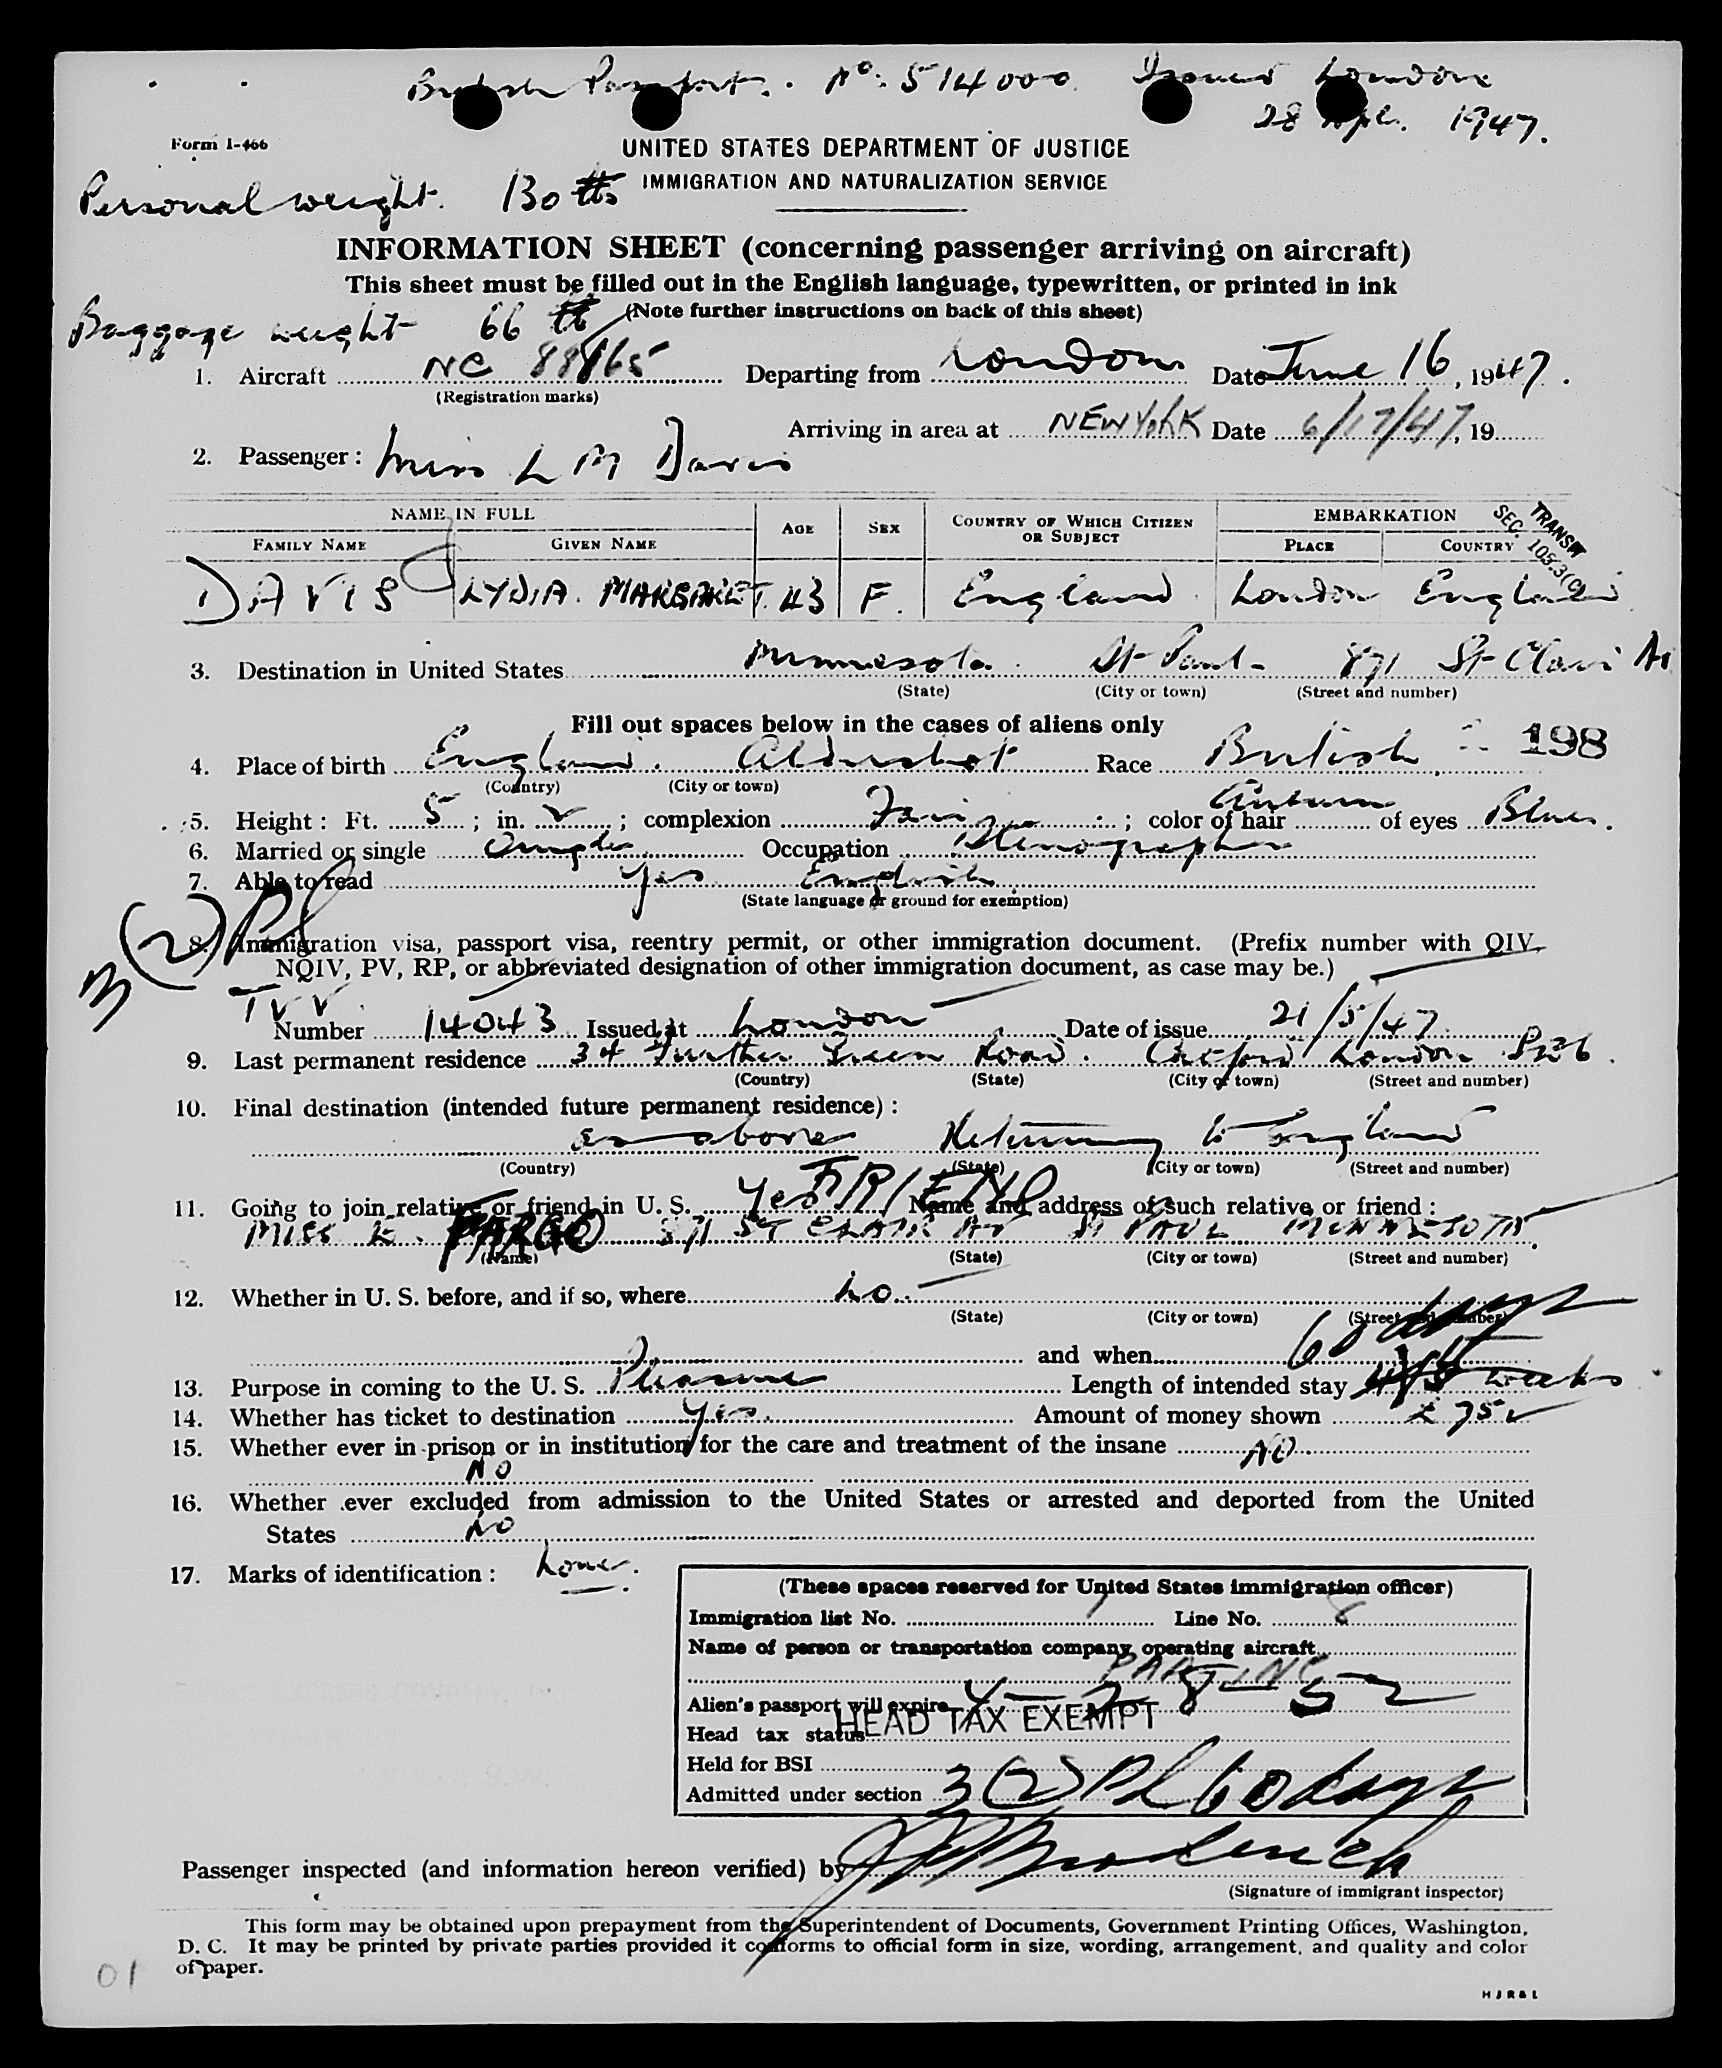 British Passport. No. 514000. Issued London
28 Apl. 1947.
Form I-466
UNITED STATES DEPARTMENT OF JUSTICE
Personal weight. 130 lbs
IMMIGRATION AND NATURALIZATION SERVICE
INFORMATION SHEET (concerning passenger arriving on aircraft)
This sheet must be filled out in the English language, typewritten, or printed in ink
Baggage weight 66 lb (Note further instructions on back of this sheet)
1. Aircraft NC 88865 Departing from London Date June 16, 1947.
(Registration marks)
Arriving in area at NEW YORK Date 6/17/47, 19
2. Passenger: Miss L M Davis
NAME IN FULL AGE SEX COUNTRY OF WHICH CITIZEN OR SUBJECT EMBARKATION
TRANSIT
SEC. 105.3(C)
FAMILY NAME GIVEN NAME PLACE COUNTRY
DAVIS LYDIA. MARGARET. 43 F. England London England
3. Destination in United States Minnesota. St Paul 871 St Clair Av
(State) (City or town) (Street and number)
Fill out spaces below in the cases of aliens only
198
4. Place of birth England. Aldershot Race British
(Country) (City or town)
5. Height: Ft. 5; in. 2; complexion Fair; color of hair Auburn of eyes Blue.
6. Married or single Single. Occupation Stenographer
7. Able to read Yes English
(State language or ground for exemption)
3(2) Pl
8. Immigration visa, passport visa, reentry permit, or other immigration document. (Prefix number with QIV,
NQIV, PV, RP, or abbreviated designation of other immigration document, as case may be.)
TVV
Number 14043 Issued at London Date of issue 21/5/47
9. Last permanent residence 34 Further Green Road. Catford London SE6.
(Country) (State) (City or town) (Street and number)
10. Final destination (intended future permanent residence):
as above Returning to England
(Country) (State) (City or town) (Street and number)
11. Going to join relative or friend in U. S. Yes FRIEND Name and address of such relative or friend:
MISS E. FARGO 871 ST CLAIR AV ST PAUL MINNESOTA.
(Name) (State) (City or town) (Street and number)
12. Whether in U. S. before, and if so, where No.
(State) (City or town) (Street and number)
and when 60 days
13. Purpose in coming to the U. S. Pleasure Length of intended stay weeks
14. Whether has ticket to destination Yes. Amount of money shown £ 75
15. Whether ever in prison or in institution for the care and treatment of the insane NO.
NO
16. Whether ever excluded from admission to the United States or arrested and deported from the United
States NO
17. Marks of identification: None.
(These spaces reserved for United States immigration officer)
Immigration list No. 1 Line No. 8
Name of person or transportation company operating aircraft
PAA INC
Alien's passport will expire 4-28-52
Head tax status HEAD TAX EXEMPT
Held for BSI
Admitted under section 3(2) Pl 60 days
Passenger inspected (and information hereon verified) by
(Signature of immigrant inspector)
This form may be obtained upon prepayment from the Superintendent of Documents, Government Printing Offices, Washington,
D. C. It may be printed by private parties provided it conforms to official form in size, wording, arrangement, and quality and color
of paper.
01
H J R & L